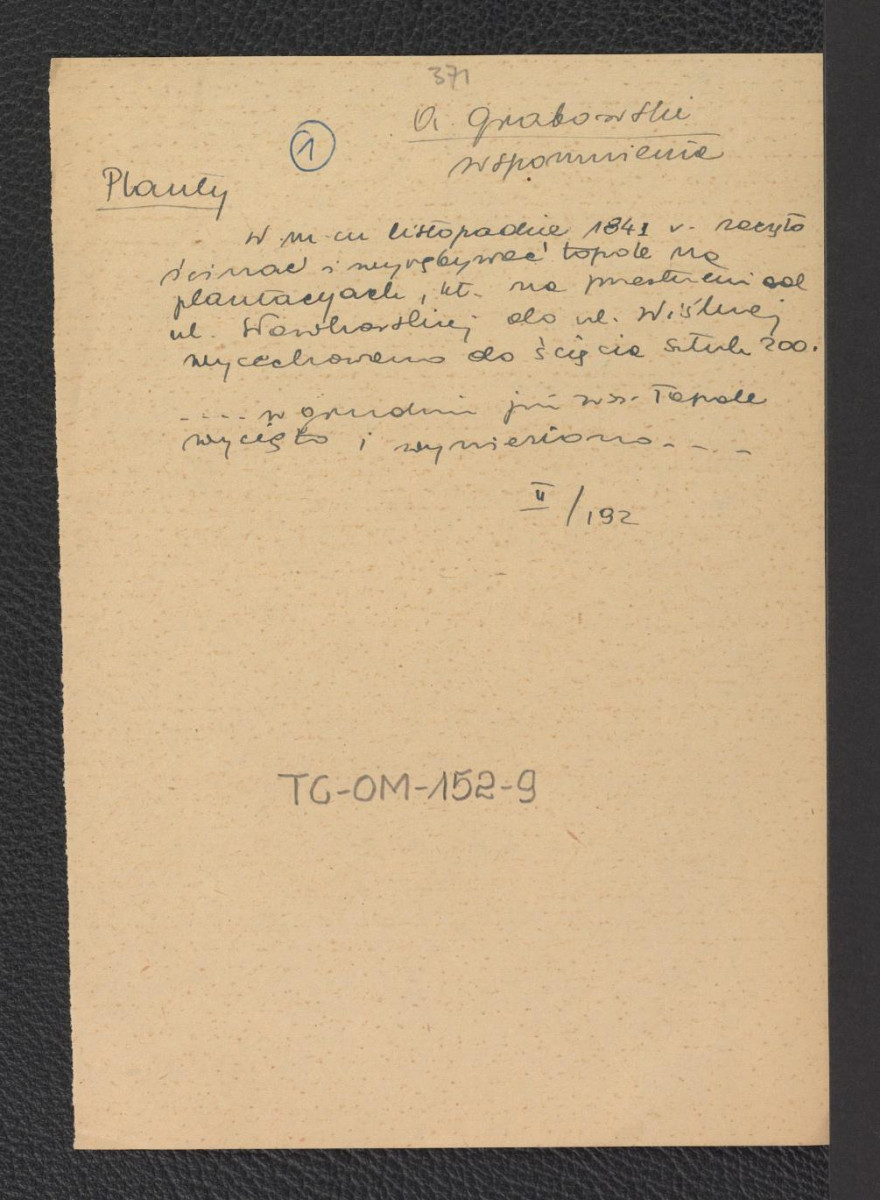 371
A. Grabowski
wspomnienia
①
Planty
W m-cu listopadzie 1841 r. zaczęto
ścinać i wyrębywać topole na
plantacyach, kt. na przestrzeni od
ul. Sławkowskiej do ul. Wiślnej
wycechowano do ścięcia sztuk 200.
.... w grudniu już wsz. Topole
wycięto i wyniesiono....
II/192
TG-OM-152-9